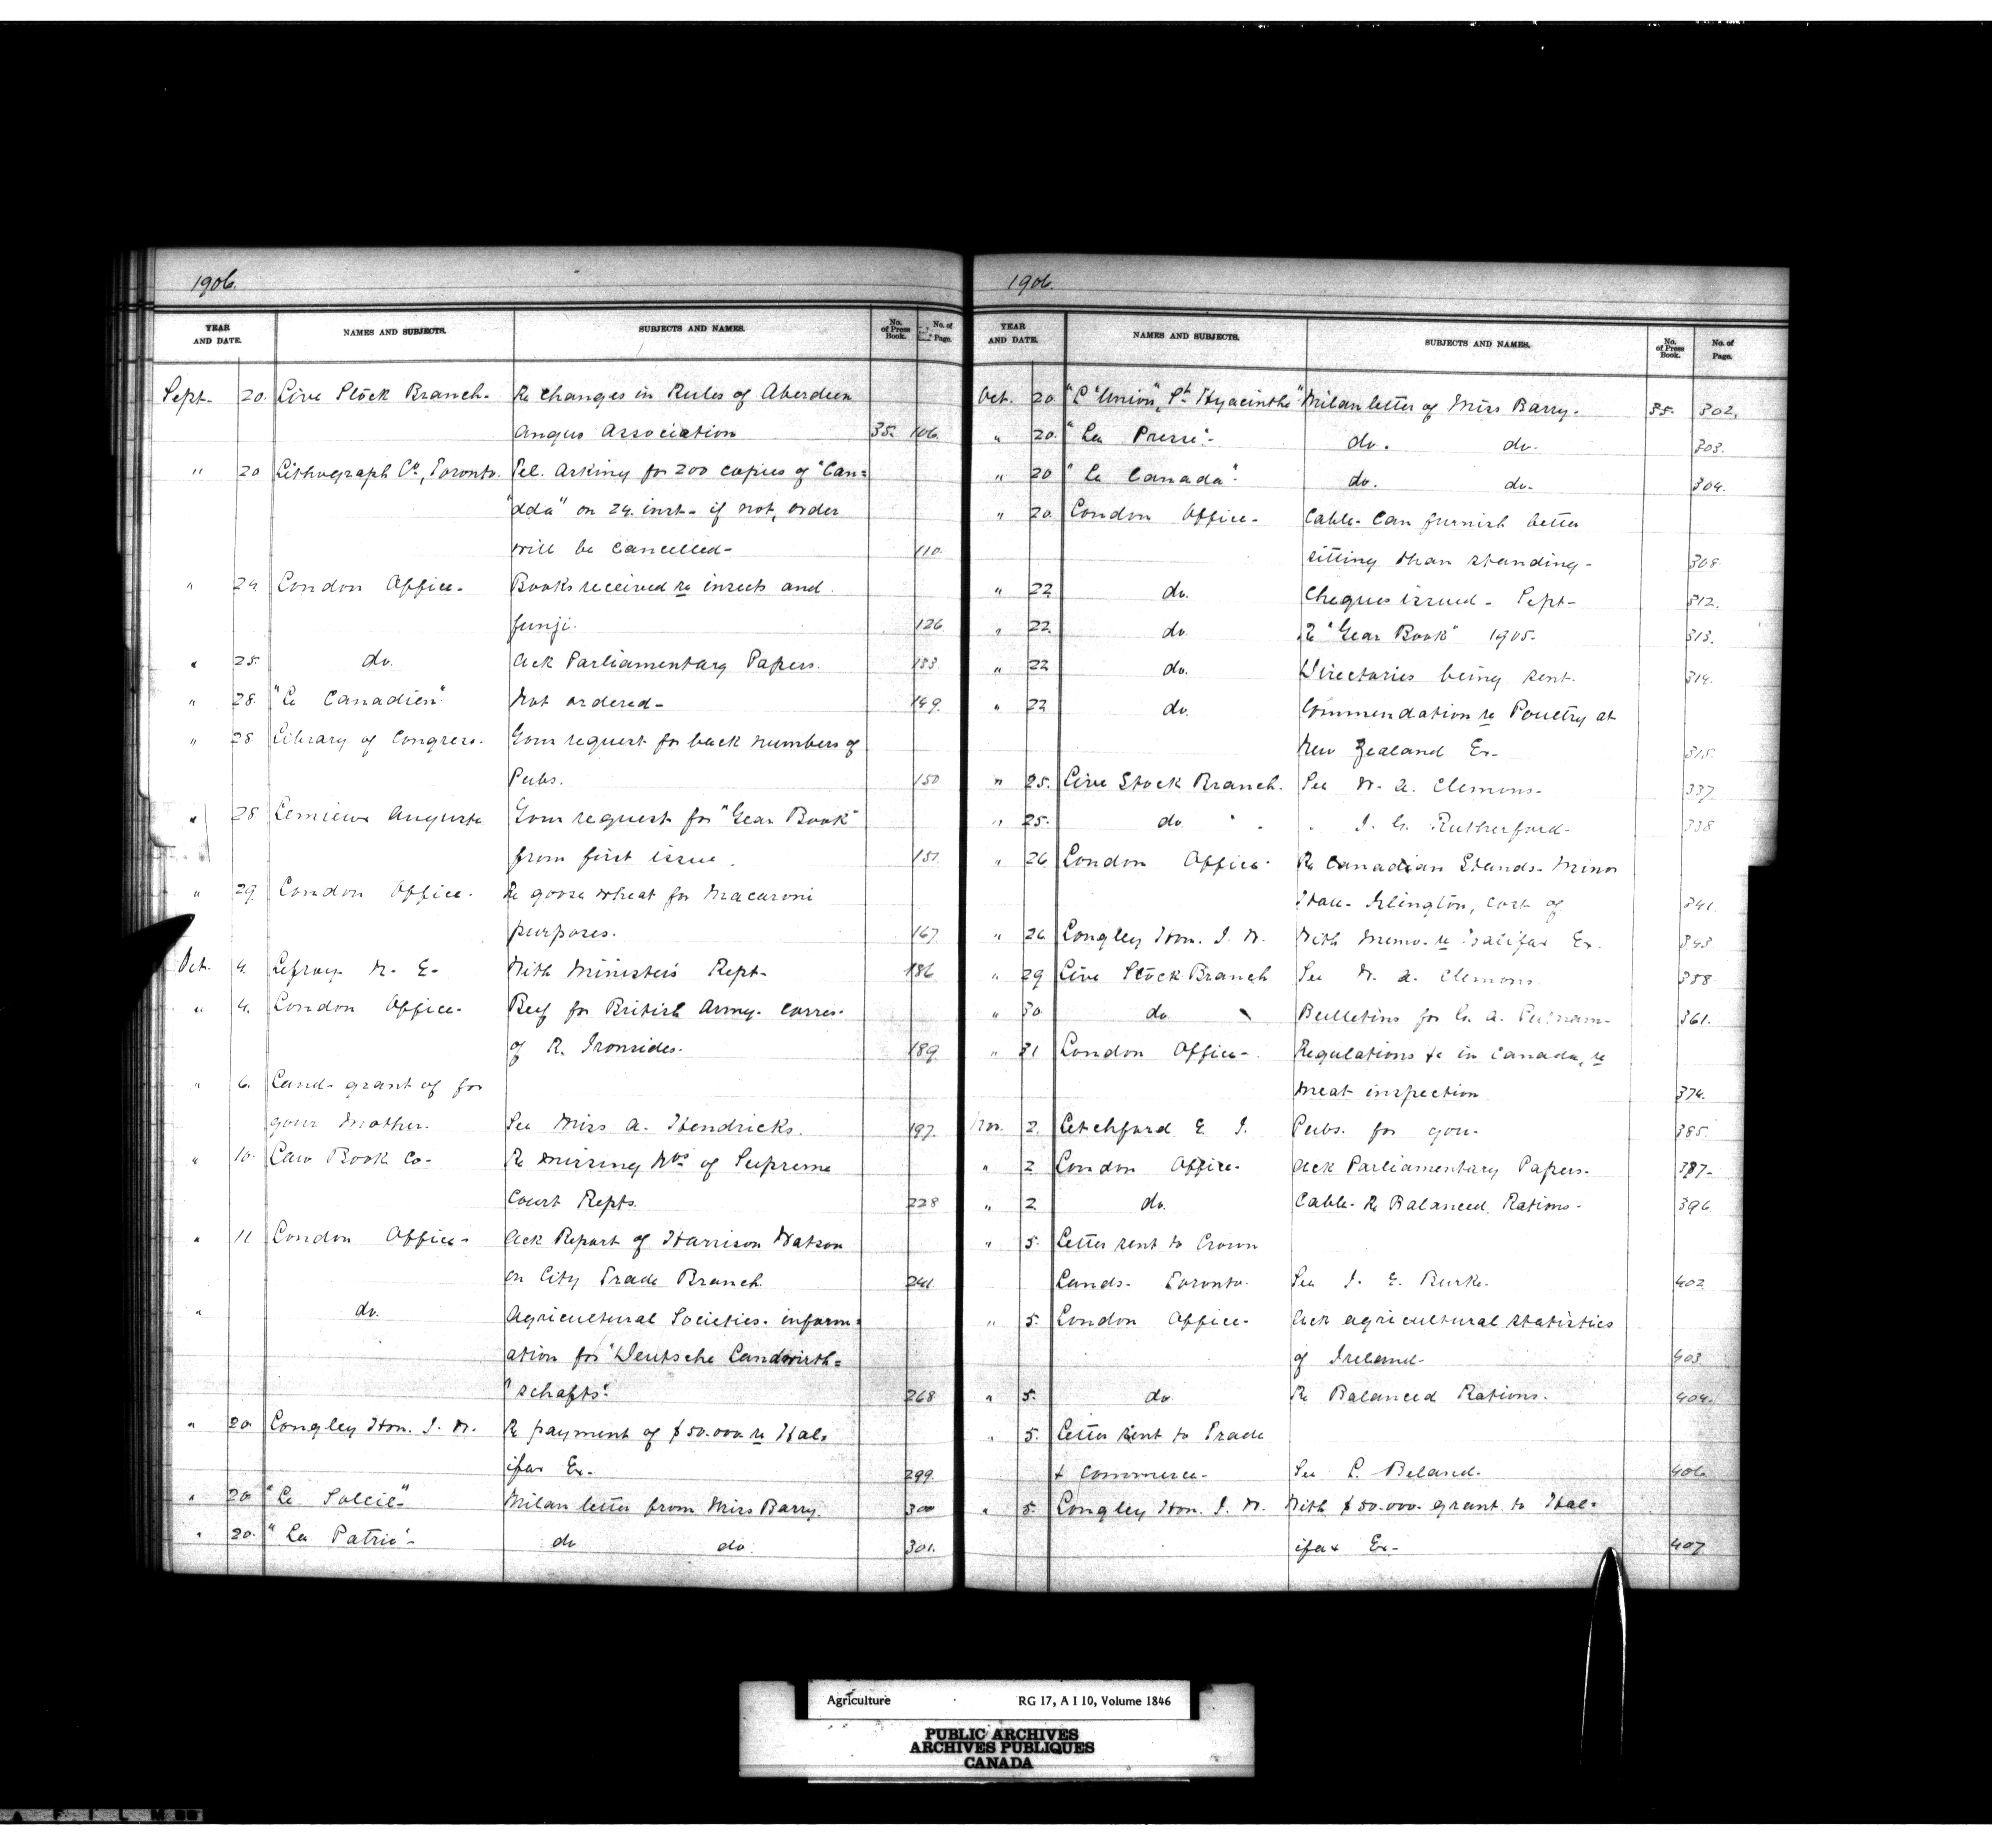 1906.
YEAR AND DATE. NAMES AND SUBJECTS. SUBJECTS AND NAMES. No. of Press Book. No. of Page.
Sept. 20. Live Stock Branch. Re changes in Rules of Aberdeen
Angus Association 35. 106.
" 20 Lithograph Co, Toronto. Tel. Asking for 200 copies of "Can=
"ada" on 24. inst. if not, order
will be cancelled- 110.
" 24. London Office. Books received re insects and
fungi. 126.
" 25. do. Ack Parliamentary Papers. 133.
" 28. "Le Canadien" Not ordered- 149.
" 28. Library of Congress. Your request for back numbers of
Pubs. 150.
" 28 Lemieux Auguste Your request for "Year Book"
from first issue. 151.
" 29. London Office. Re goose wheat for Macaroni
purposes. 167.
Oct. 4. Lefroy W. E. With Minister's Rept. 186
" 4. London Office. Beef for British Army. Corres.
of R. Ironsides. 189.
" 6. Land- grant of for
your Mother. See Miss A. Hendricks. 197.
" 10. Law Book Co- Re missing Nos of Supreme
Court Repts. 228
" 11 London Office- Ack Report of Harrison Watson
on City Trade Branch. 241.
" do. Agricultural Societies. inform=
ation for "Deutsche Landwirth=
"schafts". 268
" 20. Longley Hon. J. W. Re payment of $50.000. re Hal=
ifax Ex. 299.
" 20. "Le Soleil" Milan letter from Miss Barry. 300
" 20. "La Patrie"- do do. 301.
1906.
YEAR AND DATE. NAMES AND SUBJECTS. SUBJECTS AND NAMES. No. of Press Book. No. of Page.
Oct. 20 "L'Union", St Hyacinthe" Milan letter of Miss Barry. 35. 302.
" 20. "La Presse"- do. do. 303.
" 20 "Le Canada". do. do. 304.
" 20. London Office. Cable. Can furnish better
sitting than standing. 308.
" 22 do. Cheques issued. Sept- 312.
" 22. do. Re "Year Book" 1905. 313.
" 22 do. Directories being sent. 314.
" 22 do. Commendation re Poultry at
New Zealand Ex. 315.
" 25. Live Stock Branch. See W. A. Clemons. 337.
" 25. do. " J. G. Rutherford. 338
" 26 London Office. Re Canadian Stands. Minor
Hall. Islington, cost of 341.
" 26 Longley Hon. J. W. With Memo. re Halifax Ex. 343
" 29 Live Stock Branch See W. A. Clemons. 358
" 30. do. Bulletins for G. A. Putnam. 361.
" 31 London Office. Regulations &c in Canada, re
meat inspection 374.
Nov. 2. Letchford E. J. Pubs. for you. 385.
" 2 London Office. Ack Parliamentary Papers. 387.
" 2. do. Cable. Re Balanced Rations. 396.
" 5. Letter sent to Crown
Lands. Toronto. See J. E. Burke. 402
" 5. London Office. Ack agricultural statistics
of Ireland. 403
" 5. do. Re Balanced Rations. 404.
" 5. Letter sent to Trade
& Commerce. See L. Beland. 406.
" 5. Longley Hon. J. W. With $50.000. grant to Hal=
ifax Ex- 407
Agriculture RG 17, A I 10, Volume 1846
PUBLIC ARCHIVES
ARCHIVES PUBLIQUES
CANADA